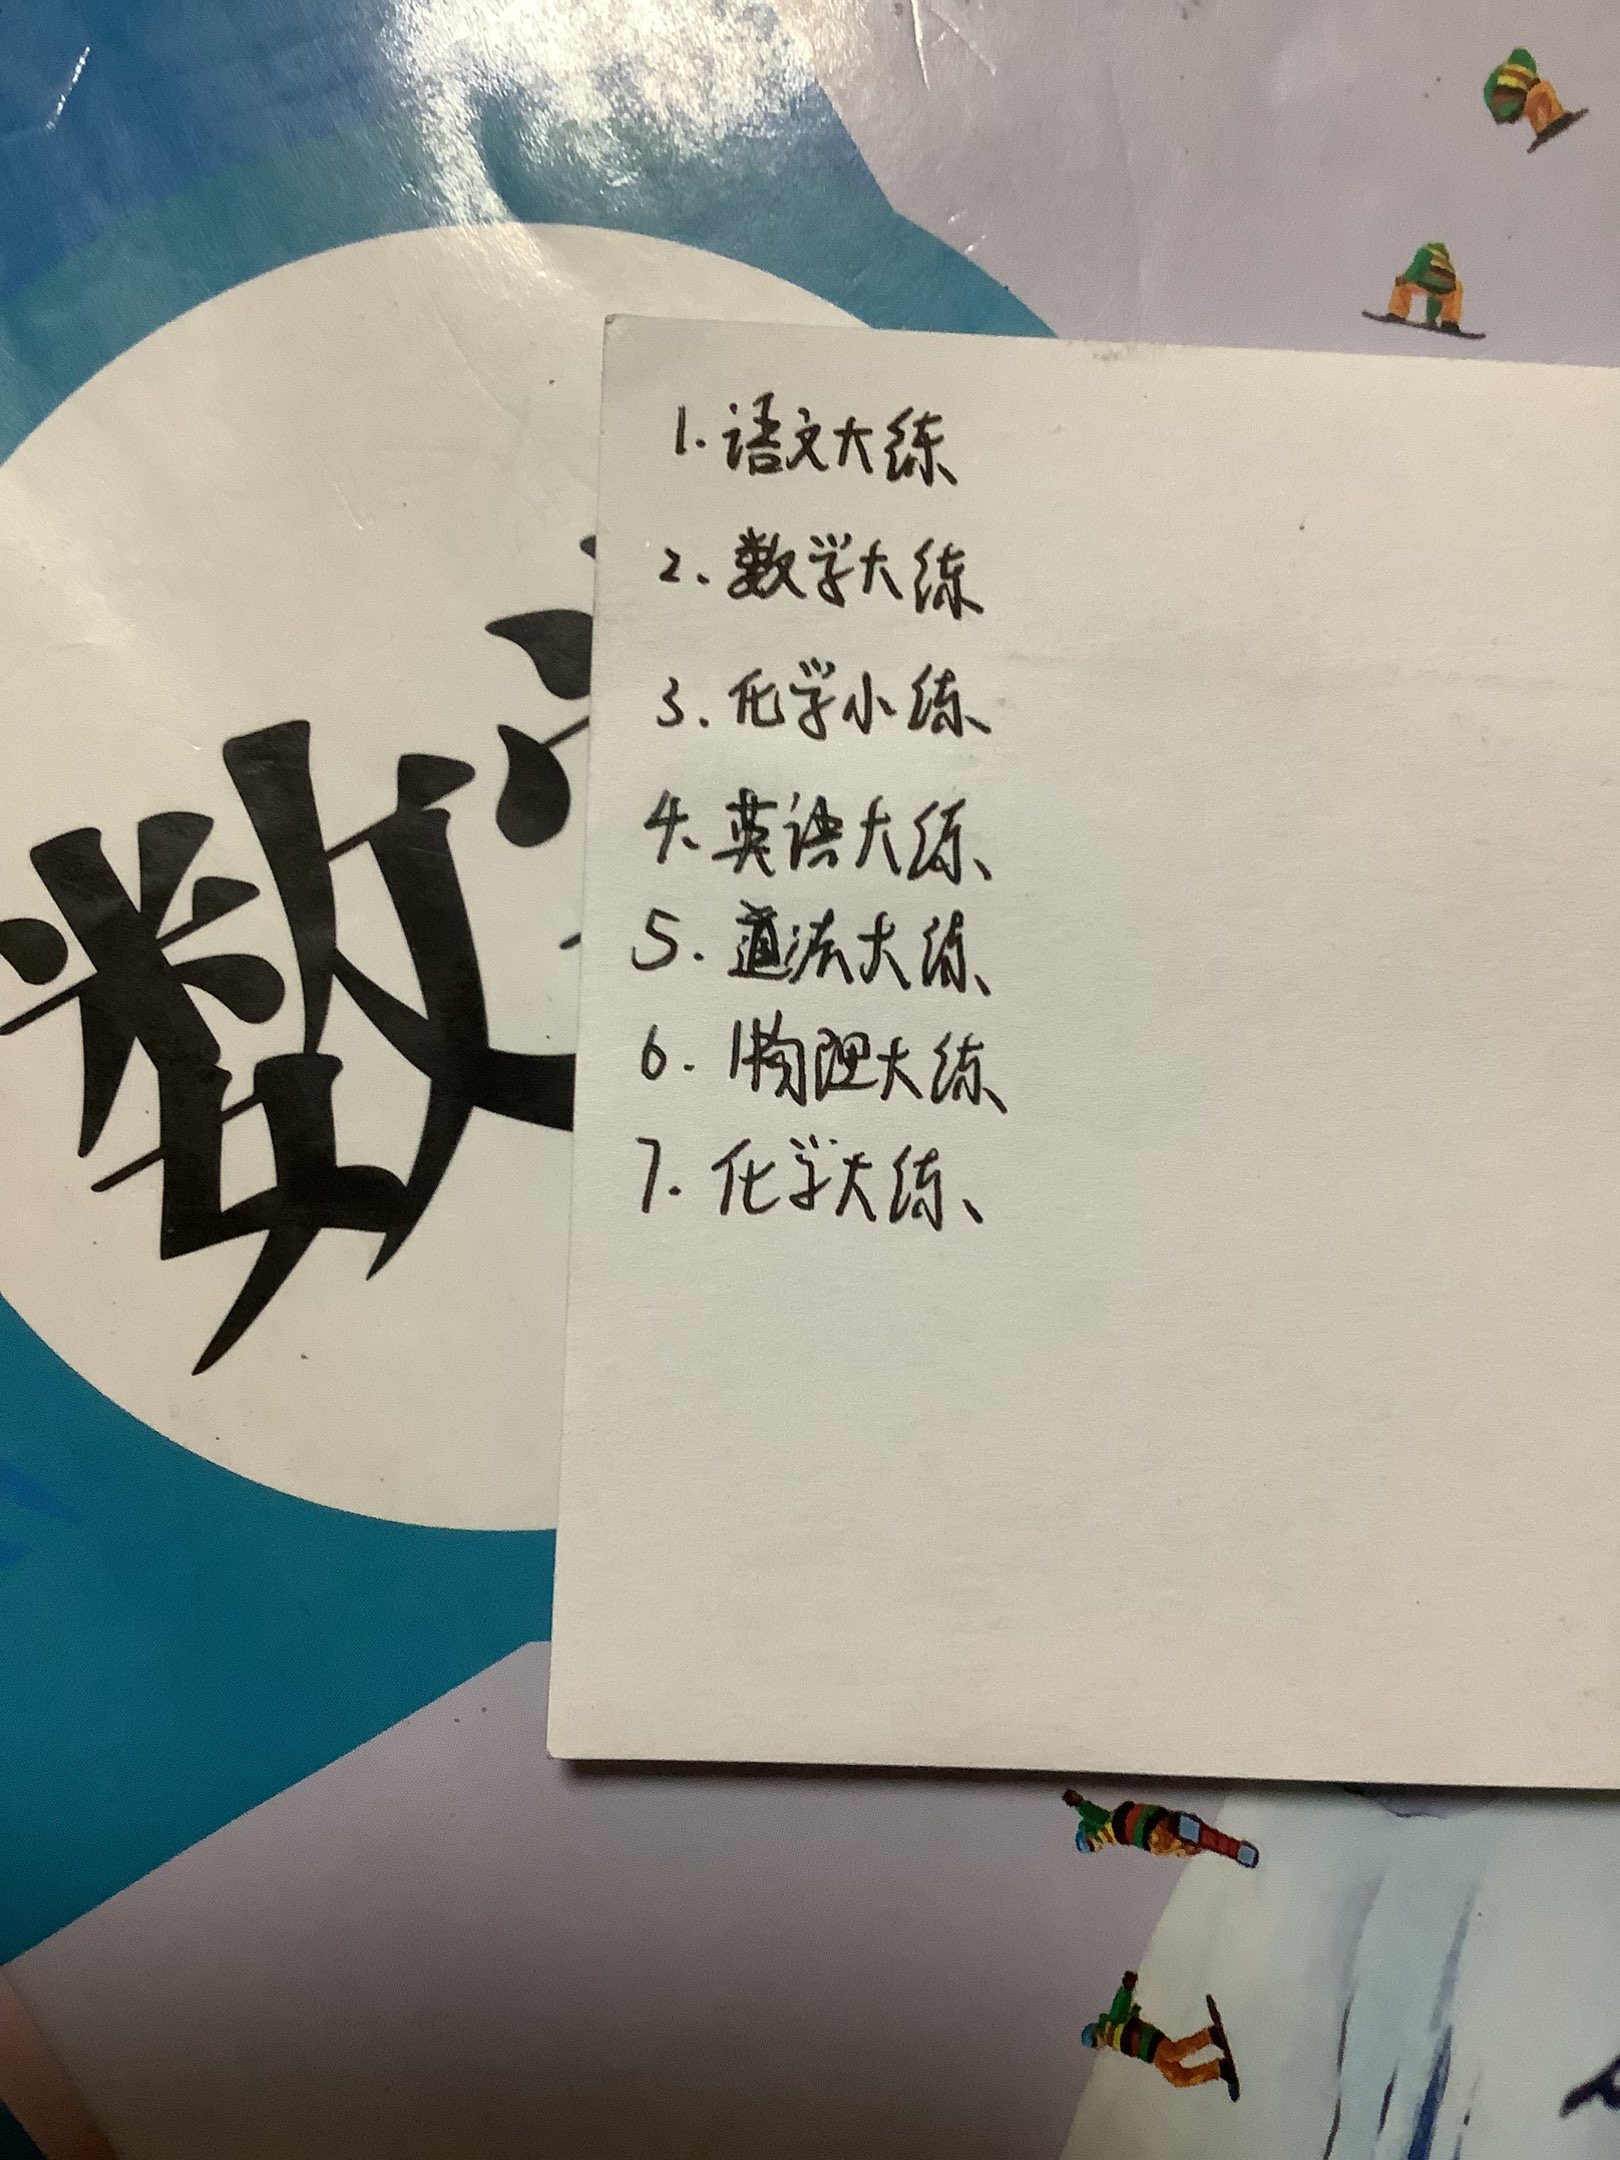 数
1. 语文大练
2. 数学大练
3. 化学小练
4. 英语大练
5. 道法大练
6. 物理大练
7. 化学大练